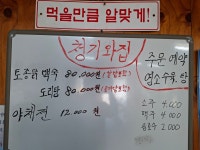 먹을만큼 알맞게!
청기와집
토종닭 백숙 80.000원
도리탕 80.000원
야채전 12.000원
주문 예약
염소수육, 탕
소주 4.000
맥주 4.000
음료수 2.000